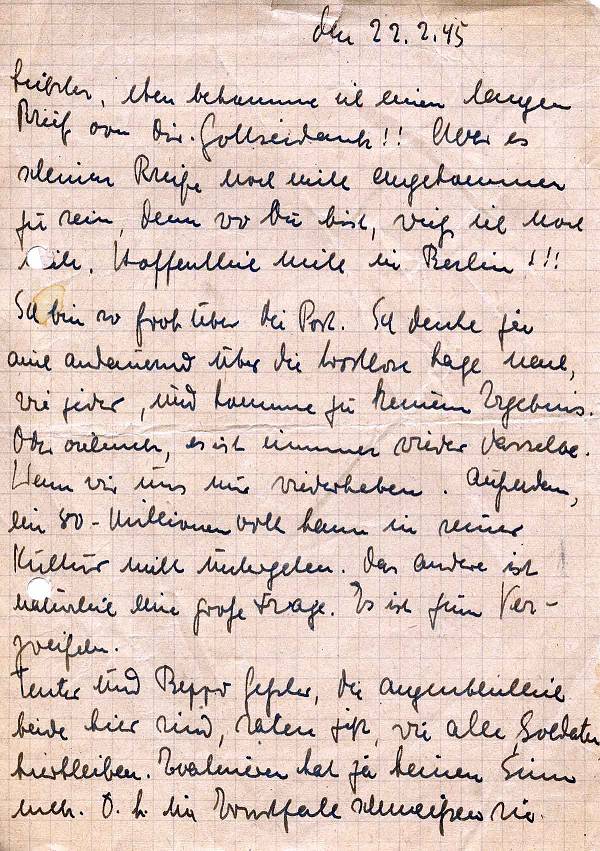 den 22.2.45
Liebster, eben bekomme ich einen langen
Brief von Dir. Gottseidank!! Aber es
scheinen Briefe noch nicht angekommen
zu sein, denn wo Du bist, weiß ich noch
nicht. Hoffentlich nicht in Berlin!!!
Ich bin so froh über die Post. Ich denke ja
auch andauernd über die trostlose Lage nach,
wie jeder, und komme zu keinem Ergebnis.
Oder vielmehr, es ist immer wieder dasselbe.
Wenn wir uns nur wiederhaben. Außerdem,
ein 80-Millionenvolk kann in seiner
Kultur nicht untergehen. Das andere ist
natürlich eine große Frage. Es ist zum Ver-
zweifeln.
und Beppo Geßler, die augenblicklich
beide hier sind, raten jetzt, wie alle Soldaten,
hierbleiben. Evakuieren hat ja keinen Sinn
mehr. D.h. im Ernstfalle schmeißen sie